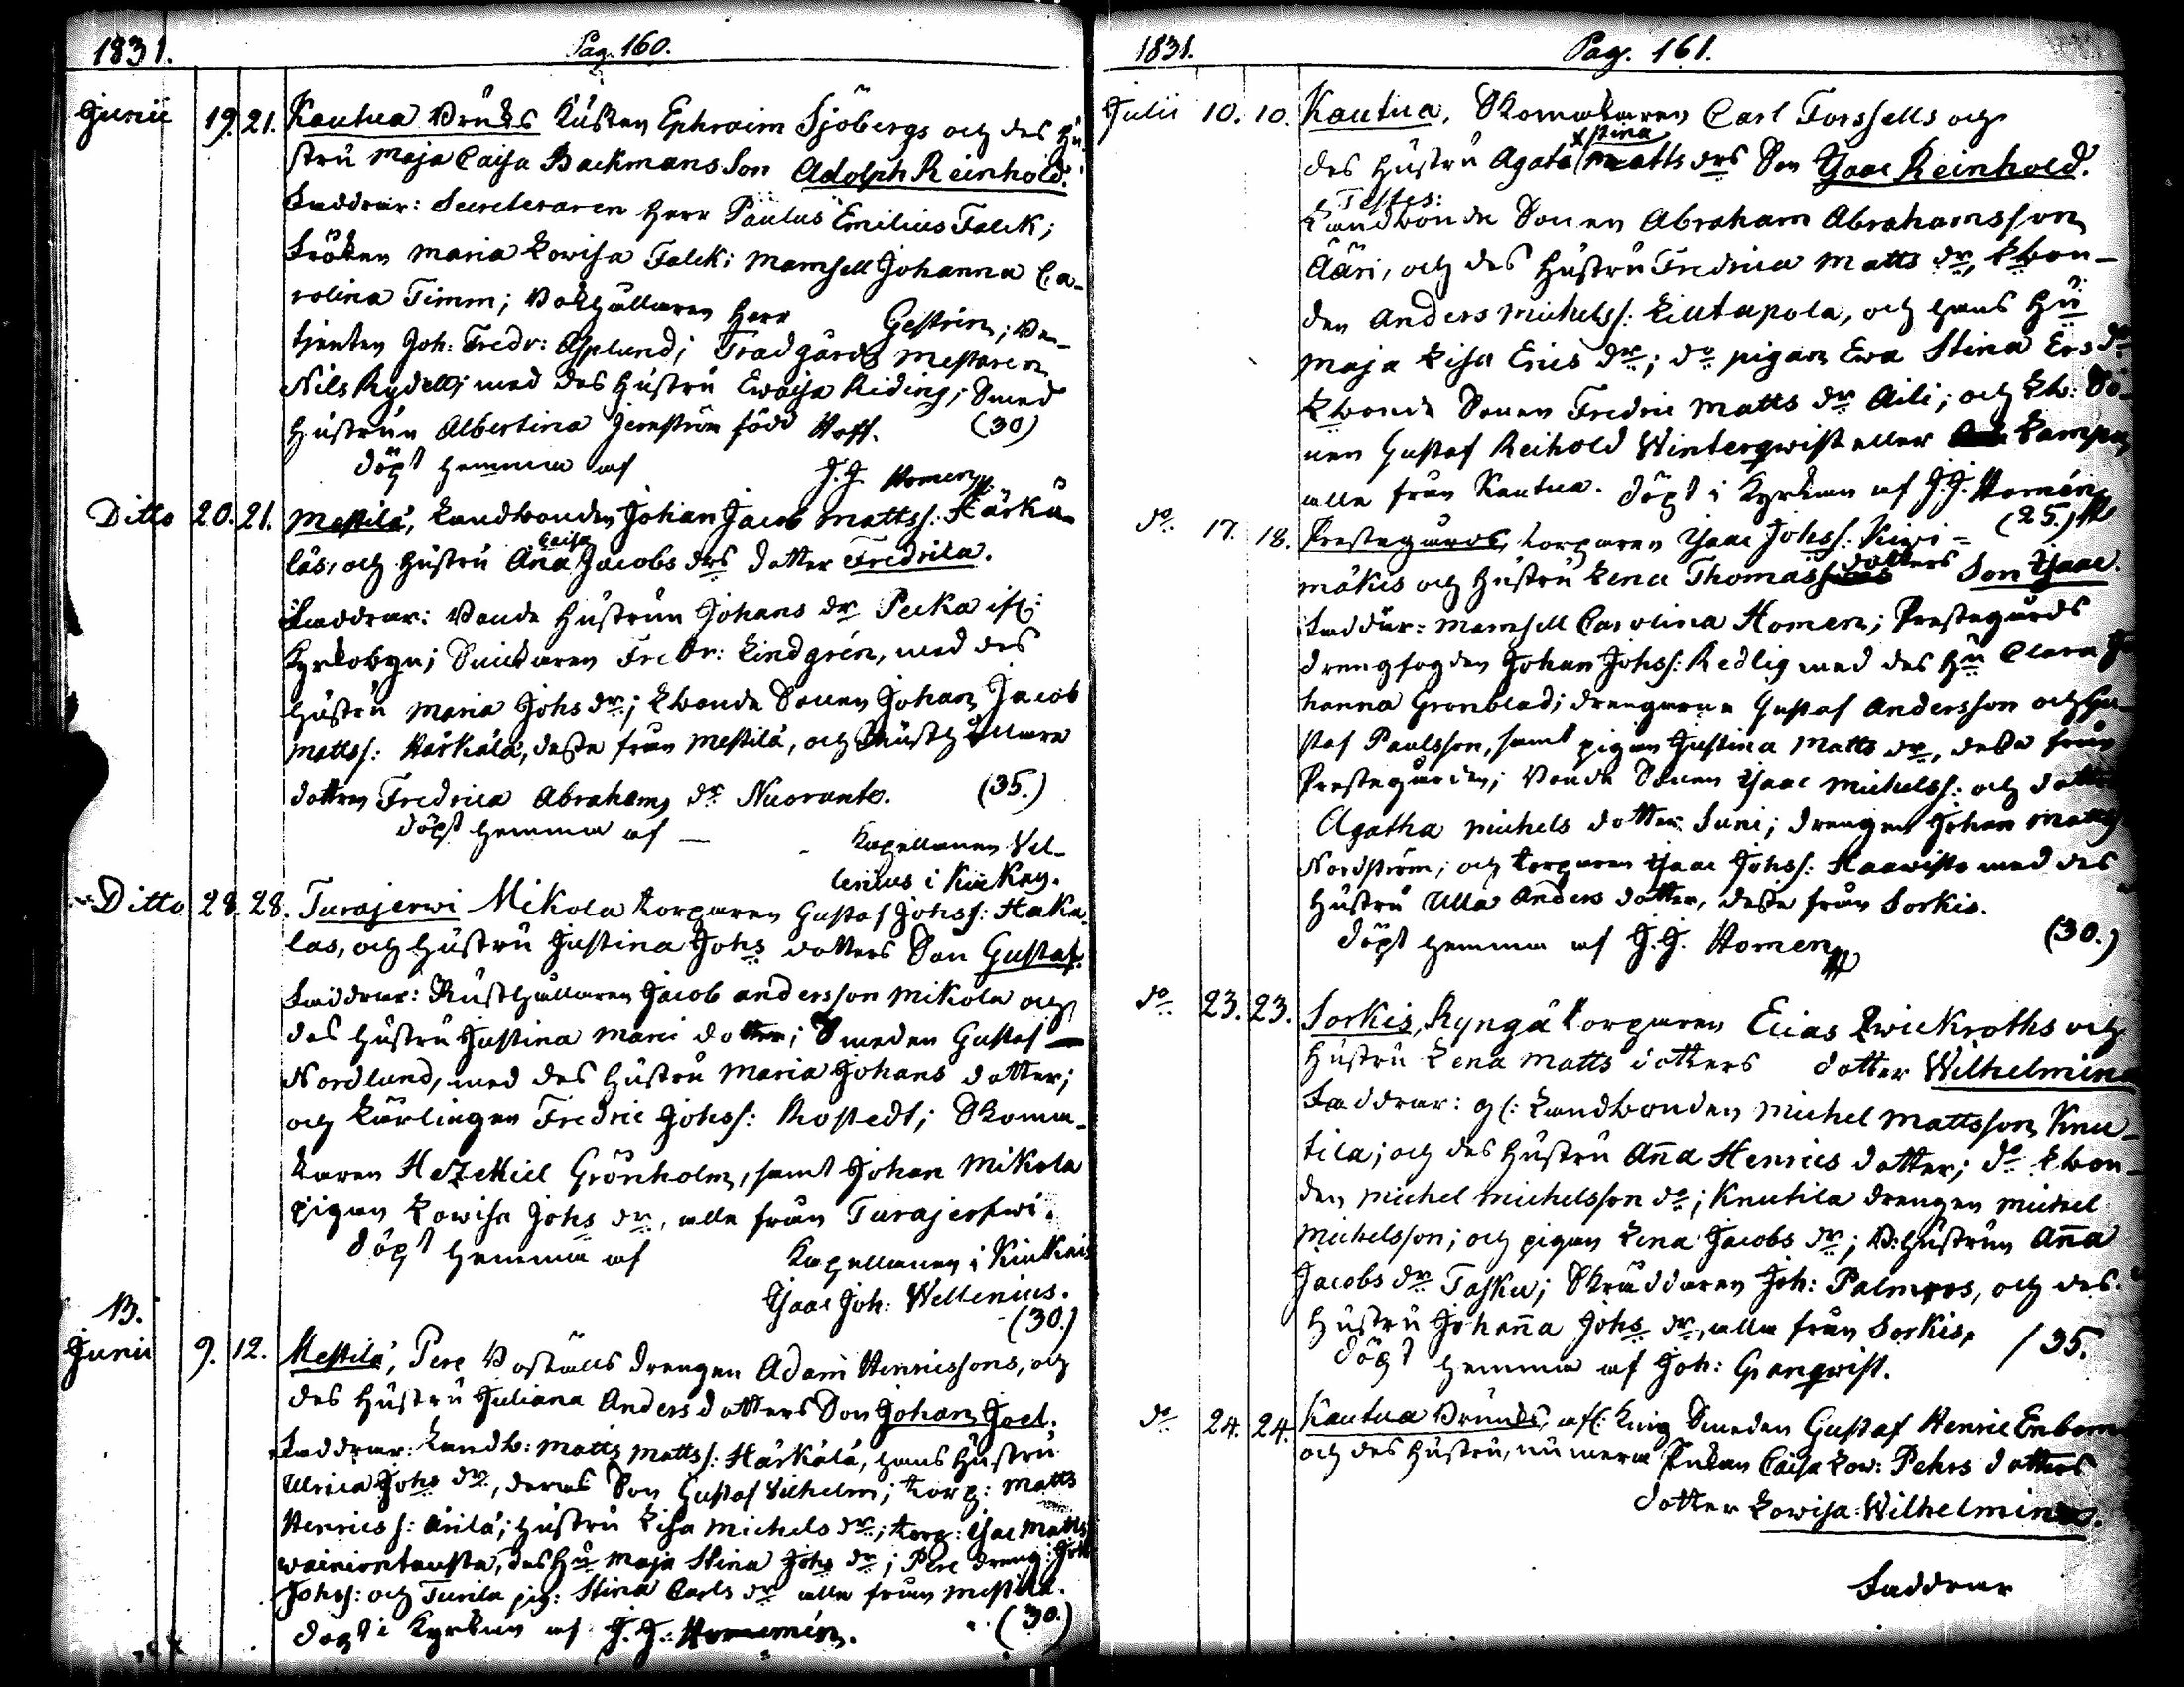 1831. Pag. 160.
Junii 19. 21. Kautua Bruks Kusken Ephraim Sjöbergs och des Hu-
stru Maja Caisa Backmans Son Adolph Reinhold.
Faddrar: Secreteraren Herr Paulus Emilius Falck;
Fröken Maria Lovisa Falck; Mamsell Johanna Ca-
rolina Timm; Bokhållaren Herr Gestrin; Be-
tjenten Joh: Fredr: Asplund; Trädgårds Mestaren
Nils Rydell; med des Hustru Ewa Riding; Smed
Hustrun Albertina Jernström född Hoff. (30)
döpt hemma af J. J. Homen
Ditto 20. 21. Mestilä, Landbonden Johan Jacob Mattss: Härkä-
läs, och Hustru Ana Caisa Jacobs drs dotter Fredrika.
Faddrar: Bonde Hustrun Johans dr Pecka if:
Kyrkobyn; Snickaren Fredr: Lindgrén, med des
Hustru Maria Johs dr; Lbonde Sonen Johan Jacob
Mattss: Härkälä, desse från Mestilä, och Rusthållare
dottren Fredrica Abrahams dr Nuoranto. (35.)
döpt hemma af — Kapellanen Vel-
lenius i Kiukas.
Ditto 28. 28. Turajerwi Mikola torparen Gustaf Johss: Haka-
las, och Hustru Justina Johs dotters Son Gustaf.
Faddrar: Rusthållaren Jacob Andersson Mikola och
des Hustru Justina Marci dotter; Smeden Gustaf
Nordlund, med des Hustru Maria Johans dotter;
och Lärlingen Fredric Johss: Rostedt; Skoma-
karen Hezekiel Grönholm, samt Johan Mikola
pigan Lowisa Johs dr, alla från Turajerfwi.
döpt hemma af Kapellanen i Kiukais
Isaac Joh: Wellenius.
(30.)
B.
Junii 9. 12. Mestilä, Pere Boställs drengen Adam Henricssons, och
des Hustru Juliana Anders dotters Son Johan Joel.
Faddrar: Landb: Matts Mattss: Härkälä, hans Hustru
Ulrica Johs dr, deras Son Gustaf Vilhelm; torp: Matts
Henricss: Arilä; Hustru Lisa Michels dr; torp: Isac Matts
wainiontausta, des Hu Maja Stina Johs dr; Pere dreng: Joh
Johss: och Turila pig: Stina Carls dr alla från Mestilä.
döpt i Kyrkan af J. J. Homén. (30.)
1831. Pag. 161.
Julii 10. 10. Kautua, Skomakaren Carl Forssells och
des Hustru Agata stina Matts drs Son Isaac Reinhold.
Testes:
Landbonde Sonen Abraham Abrahamsson
Ääri, och des Hustru Fredrica Matts dr, Lbon-
den Anders Michelss: Liutapola, och hans Hu
Maja Lisa Erics dr; do pigan Ewa Stina Ers dr
Lbonde Sonen Fredric Matts dr Aili; och Lb: So-
nen Gustaf Reihold Winterqwist eller Lampa
alla från Kautua. döpt i Kyrkan af J. J. Homén
(25.)
do 17. 18. Prestegårds, torparen Isaac Johss: Kiwi-
mäkis och Hustru Lena Thomas dotters Son Isaac.
Faddrar: Mamsell Carolina Homen; Prestegårds
drengfogden Johan Johss: Redlig med des Hu Clara Jo-
hanna Grönblad; drengarne Gustaf Andersson och Gu-
staf Paulsson, samt pigan Justina Matts dr, dessa från
Prestegården; Bonde Sonen Isaac Michelss: och dottren
Agatha Michels dotter Juni; drengen Johan Matts
Nordström; och torparen Isaac Johss: Haawisto med des
Hustru Ulla Anders dotter, desse från Sorkis.
döpt hemma af J. J. Homen (30.)
do 23. 23. Sorkis, Ryngä torparen Elias Qwickroths och
Hustru Lena Matts dotters dotter Wilhelmina
Faddrar: gl: Landbonden Michel Mattsson Knu-
tila; och des Hustru Aña Henrics dotter; do Lbon-
den Michel Michelsson do; Knutila drengen Michel
Michelsson; och pigan Lena Jacobs dr; B: Hustrun Aña
Jacobs dr Tasku; Skräddaren Joh: Palmros, och des
Hustru Johaña Johs dr, alla från Sorkis. /35.
döpt hemma af Joh: Granqwist.
do 24. 24. Kautua Bruks, afl: Knip Smeden Gustaf Henric Enbom
och des Hustru, numera Enkan Caisa Low: Pehrs dotters
dotter Lowisa Wilhelmina.
Faddrar